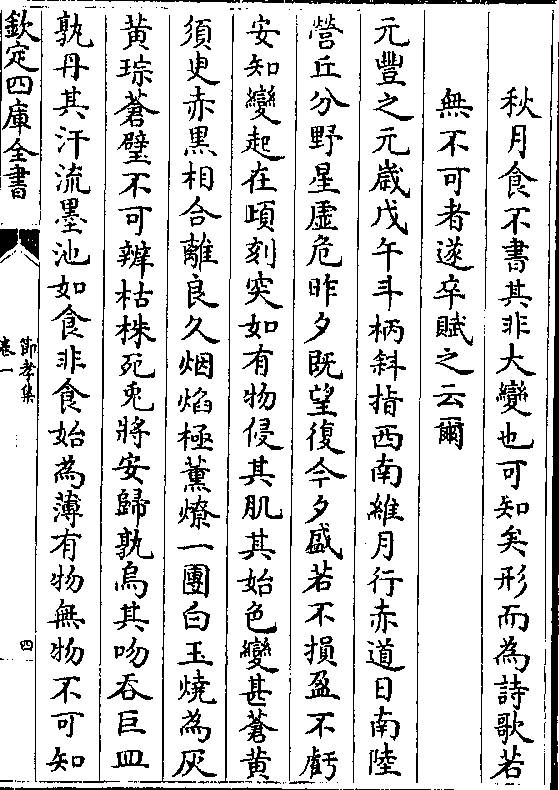 秋月食不書其非大變也可知矣形而為詩歌若
無不可者遂卒賦之云爾
元豐之元歲戊午斗柄斜指西南維月行赤道日南陸
營丘分野星虛危昨夕既望復今夕盛若不損盈不虧
安知變起在頃刻突如有物侵其肌其始色變甚蒼黃
須臾赤黑相合離良久烟焰極薰燎一團白玉燒為灰
黃琮蒼璧不可辨枯株死兎將安歸孰烏其吻吞巨皿
孰丹其汗流墨池如食非食始為薄有物無物不可知
欽定四庫全書
節孝集
卷一
四